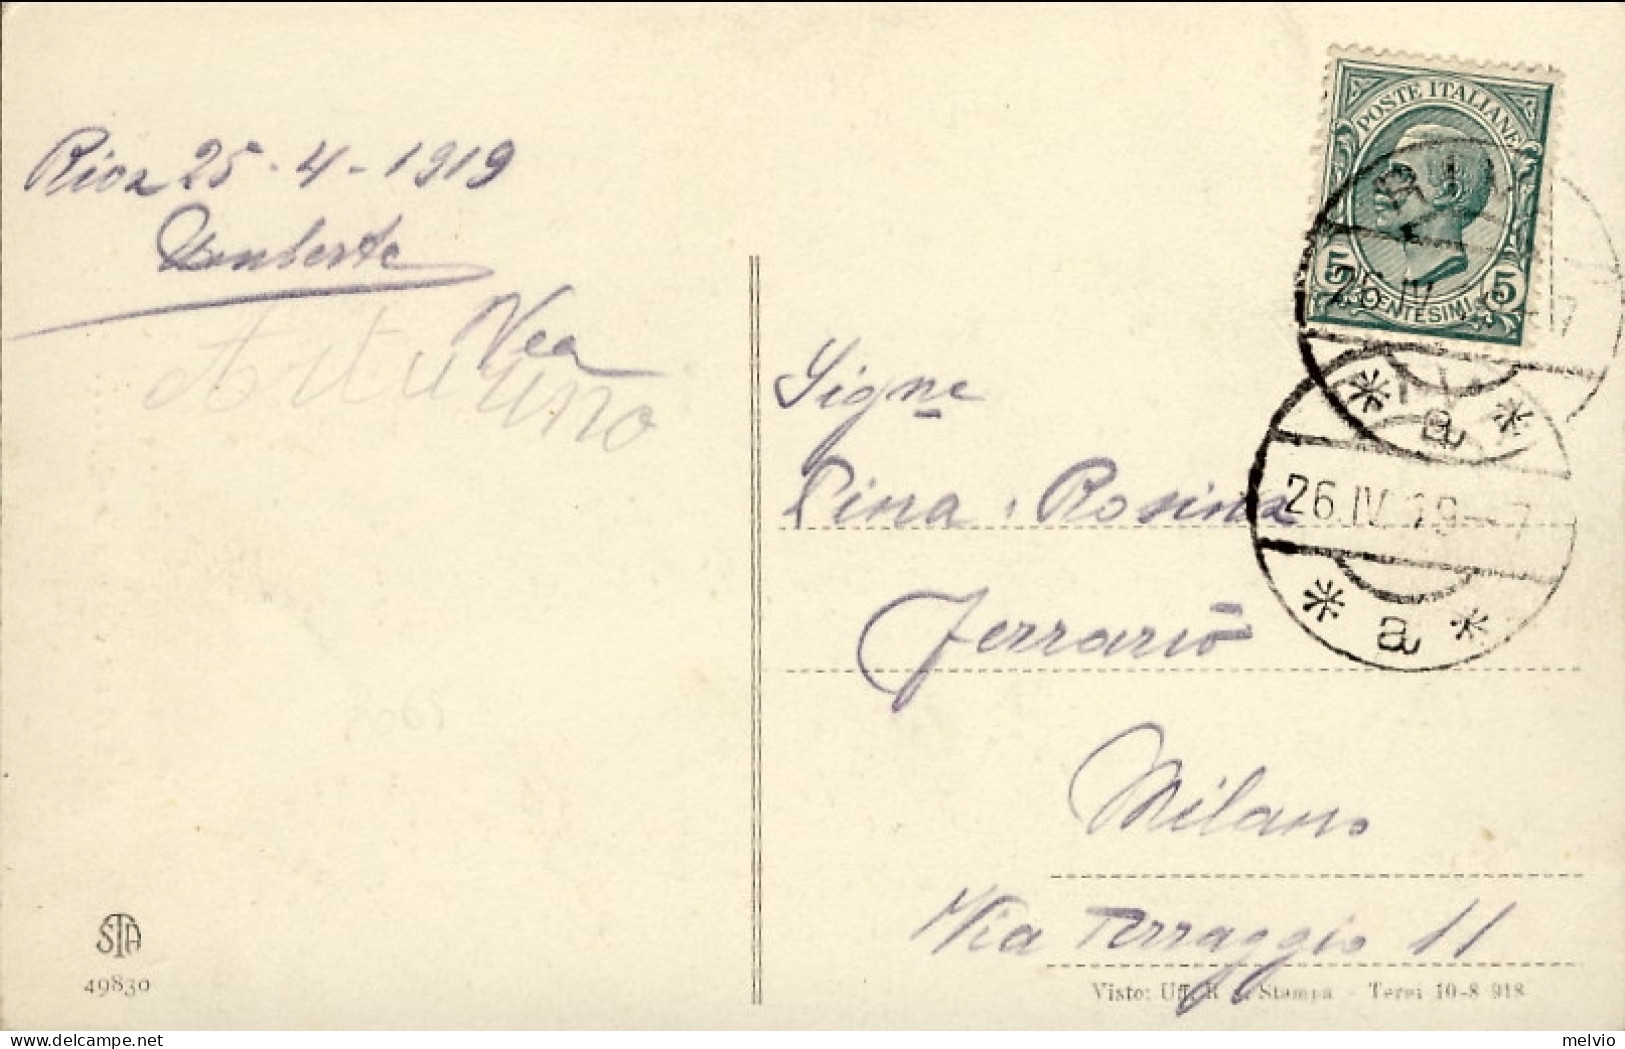 Riva 25-4-1919
Umberto
Nea
Arturino
STA
49830
POSTE ITALIANE
5 CENTESIMI 5
26.IV
26.IV.19-7
* a *
* a *
Signe
Pina, Rosina
Ferrario
Milano
Via Terraggio 11
Visto: Uff. R Stampa - Terni 10-8 918
melvio